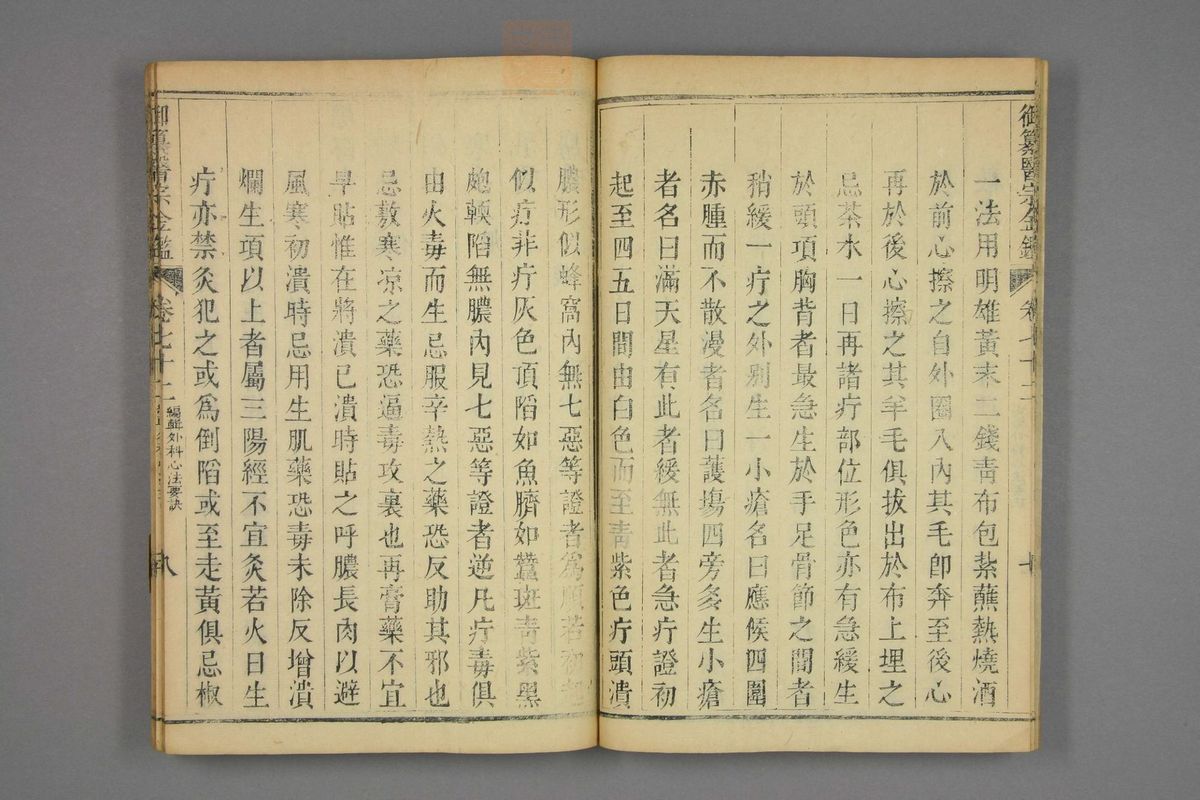 御纂醫宗金鑑
一法用明雄黃末二錢靑布包紮蘸熱燒酒
於前心擦之自外圈入內其毛卽奔至後心
再於後心擦之其羊毛俱拔出於布上埋之
忌茶水一日再諸疔部位形色亦有急緩生
於頭項胸背者最急生於手足骨節之間者
稍緩一疔之外别生一小瘡名曰應候四圍
赤腫而不散漫者名曰護塲四旁多生小瘡
者名曰滿天星有此者緩無此者急疔證初
起至四五日間由白色而至靑紫色疔頭潰
膿形似蜂窩內無七惡等證者爲順若初起
似疔非疔灰色頂陷如魚臍如蠶斑靑紫黑
皰軟陷無膿內見七惡等證者逆凡疔毒俱
由火毒而生忌服辛熱之藥恐反助其邪也
忌敷寒凉之藥恐逼毒攻裏也再膏藥不宜
早貼惟在將潰已潰時貼之呼膿長肉以避
風寒初潰時忌用生肌藥恐毒未除反增潰
爛生項以上者屬三陽經不宜灸若火日生
疔亦禁灸犯之或爲倒陷或至走黃俱忌椒
御纂醫宗金鑑
卷七十二
編輯外科心法要訣
八